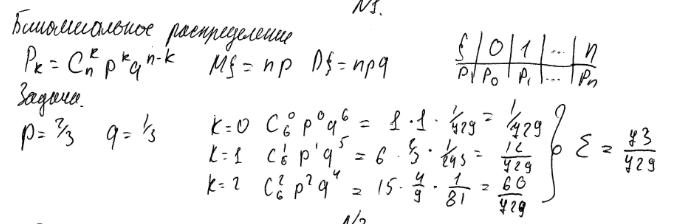 №1.
Биномиальное распределение
P_k = C_n^k p^k q^{n-k} Mξ = np Dξ = npq
ξ | 0 | 1 | ... | n
P | P₀ | P₁ | ... | Pₙ
Задача.
p = 2/3 q = 1/3
k=0 C_6^0 p^0 q^6 = 1 · 1 · 1/729 = 1/729
k=1 C_6^1 p^1 q^5 = 6 · 2/3 · 1/243 = 12/729
k=2 C_6^2 p^2 q^4 = 15 · 4/9 · 1/81 = 60/729
} Σ = 73/729